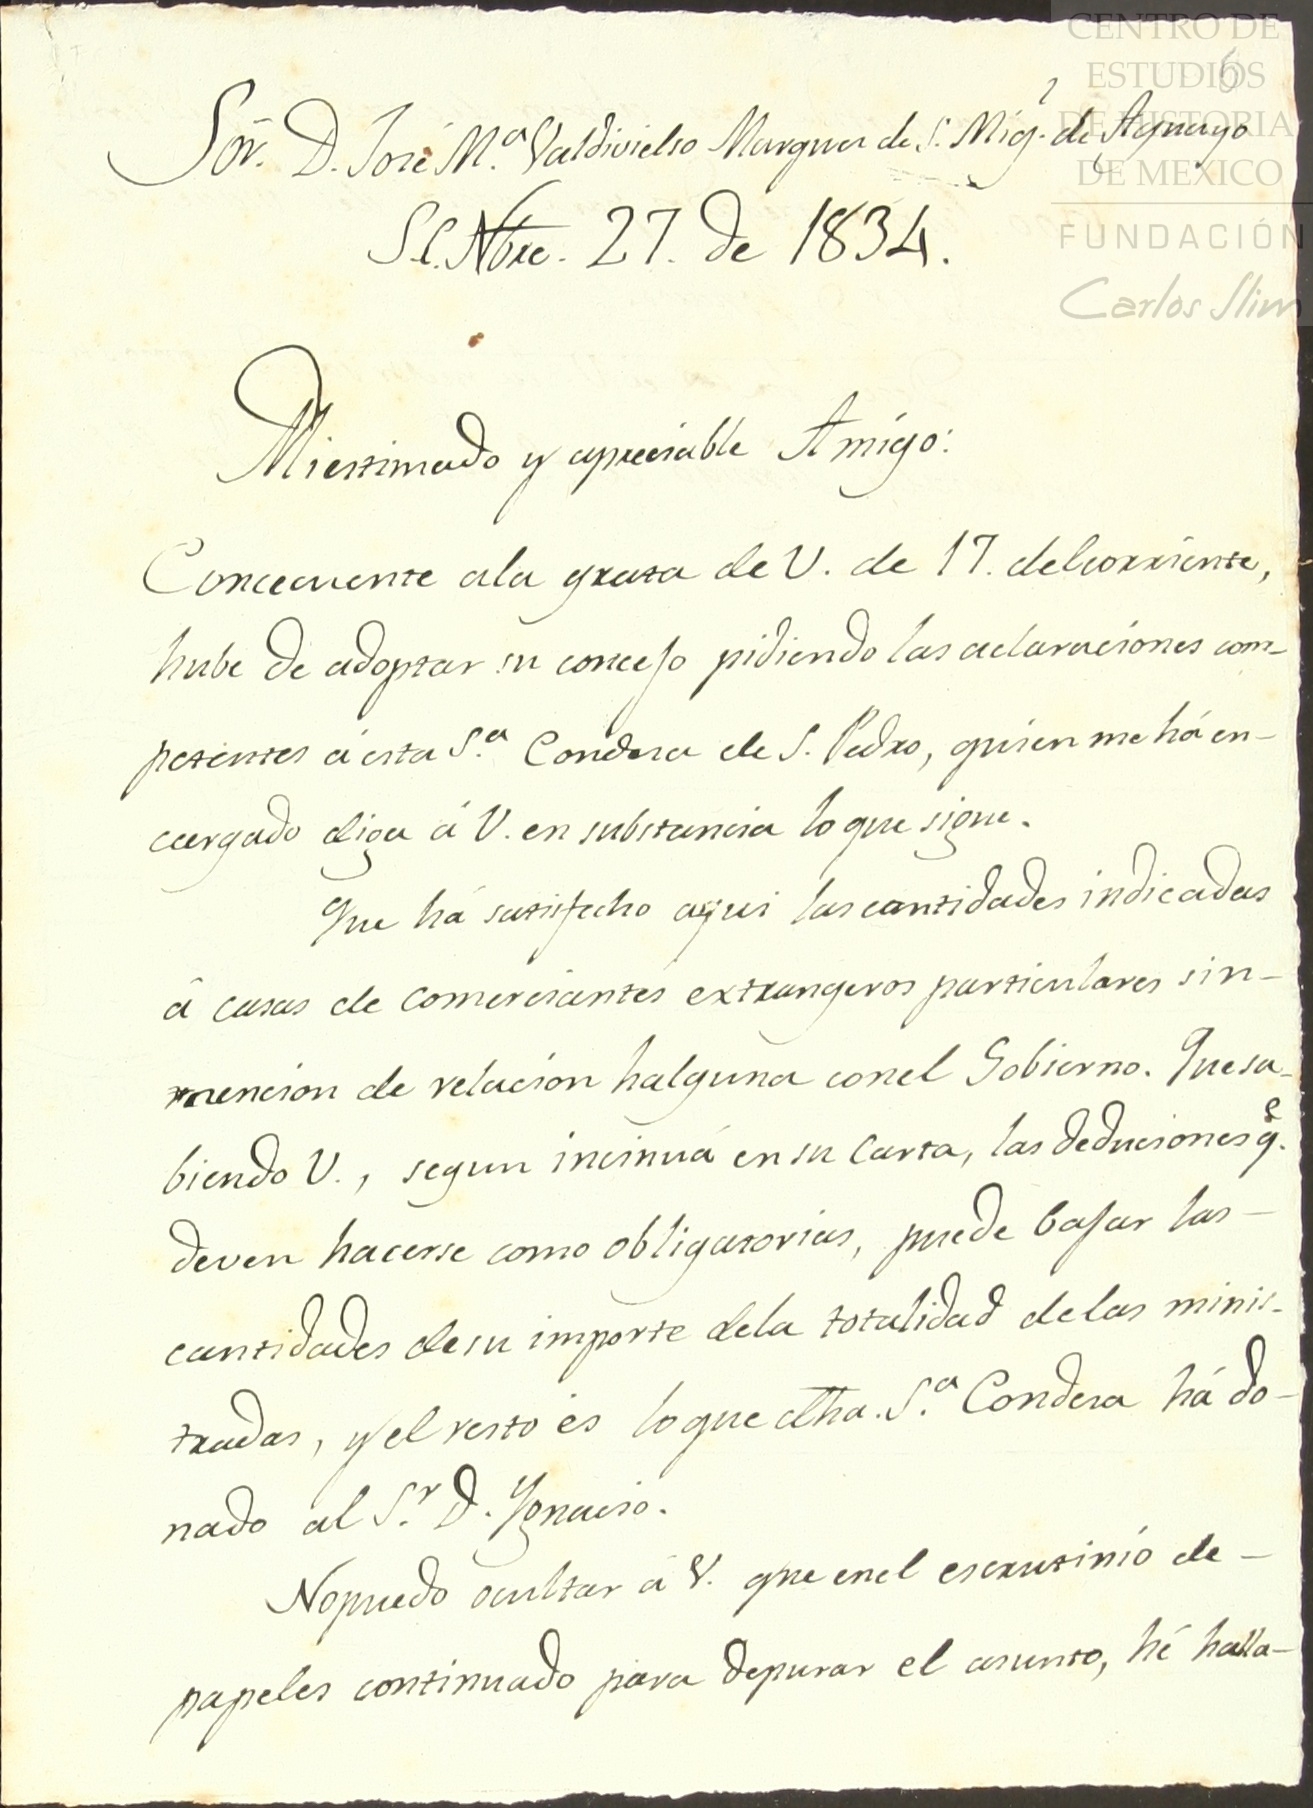 CENTRO DE
ESTUDIOS
DE HISTORIA
DE MEXICO
FUNDACIÓN
Carlos Slim
6
Sõr. D. José M.ª Valdivielso Marques de S. Mig.l de Aguayo
S.C. Nbre. 27. de 1834.
Mi estimado y apreciable Amigo:
Concecuente ala grata de V. de 17. del corriente,
hube de adoptar su concejo pidiendo las aclaraciones com-
petentes á esta S.ª Condesa de S. Pedro, quien me há en-
cargado diga á V. en substancia lo que sigue.
Que há satisfecho aqui las cantidades indicadas
â casas de comerciantes extrangeros particulares sin-
mencion de relacion halguna conel Gobierno. Que sa-
biendo V., segun incinuá en su Carta, las deduciones q.e
deven hacerse como obligatorias, puede bajar las-
cantidades desu importe dela totalidad delas minis-
tradas, y el resto és lo que dha. S.ª Condesa há do-
nado al S.r D. Ygnacio.
No puedo ocultar á V. que enel escrutinió de-
papeles continuado para depurar el asunto, hé halla-